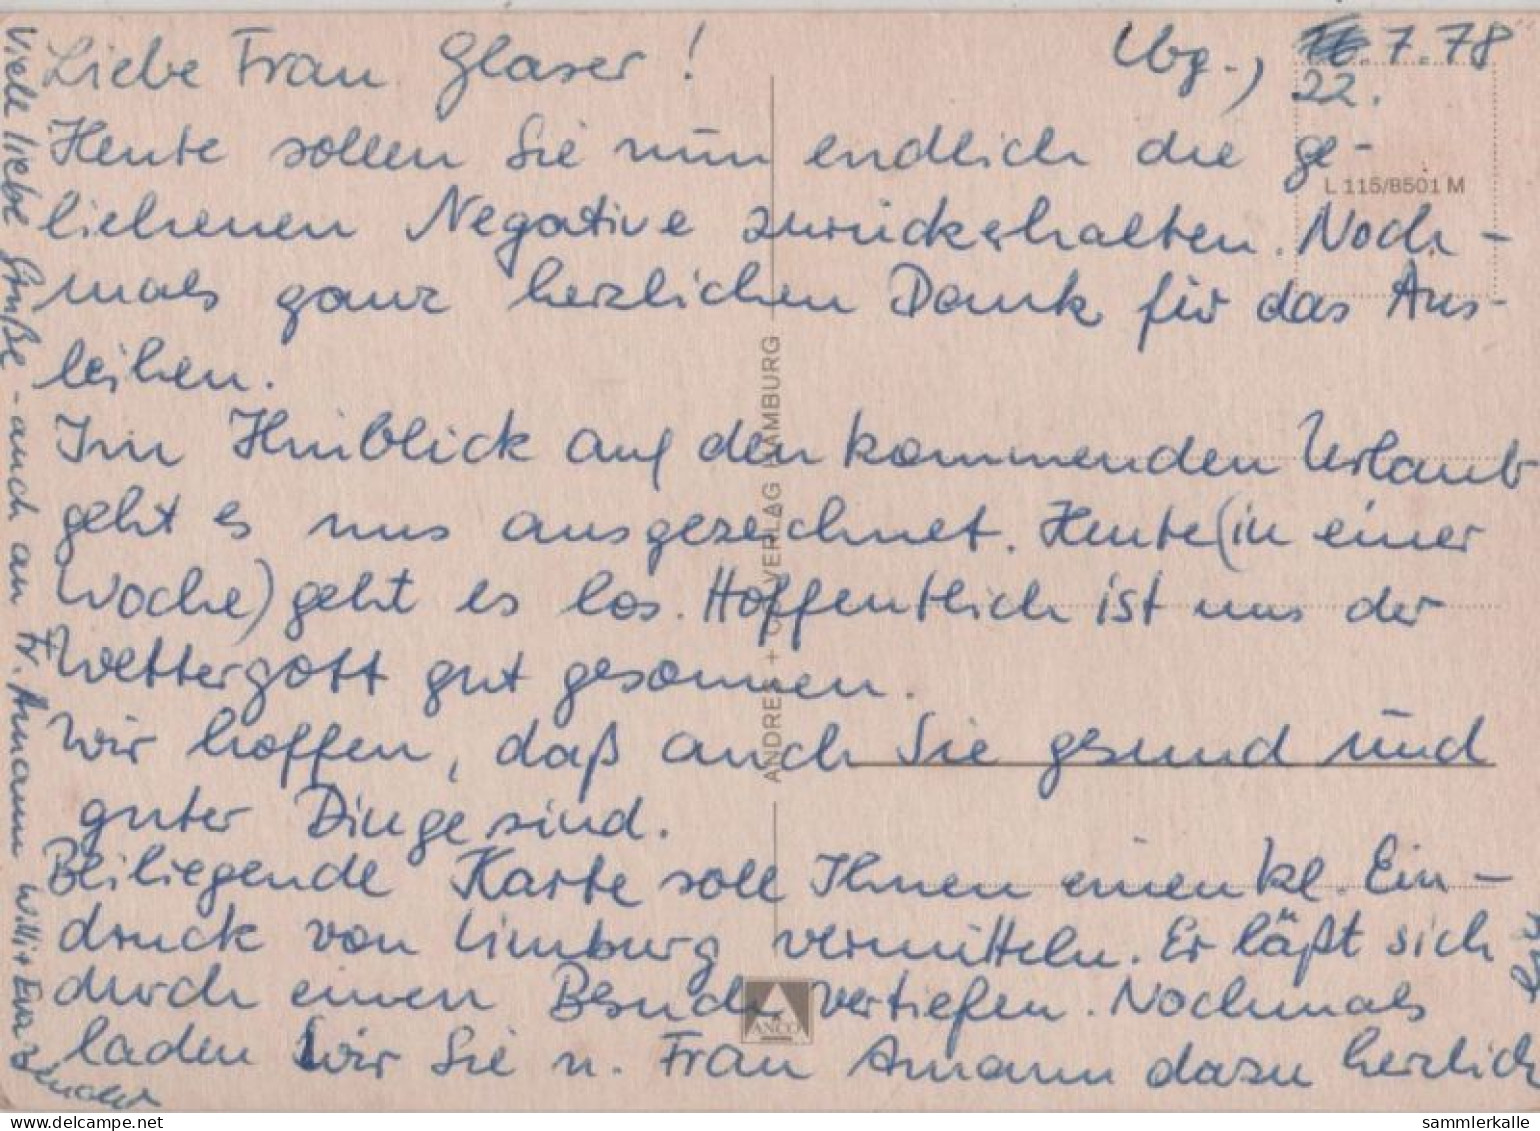 Lbg., 16. 7. 78
22.
Liebe Frau Glaser!
Heute sollen Sie nun endlich die ge-
liehenen Negative zurückerhalten. Noch-
mals ganz herzlichen Dank für das Aus-
leihen.
Im Hinblick auf den kommenden Urlaub
geht es uns ausgezeichnet. Heute (in einer
Woche) geht es los. Hoffentlich ist uns der
Wettergott gut gesonnen.
Wir hoffen, daß auch Sie gesund und
guter Dinge sind.
Beiliegende Karte soll Ihnen einen kl. Ein-
druck von Limburg vermitteln. Er läßt sich
durch einen Besuch vertiefen. Nochmals
laden wir Sie u. Frau Amann dazu herzlich
Viele liebe Grüße - auch an Fr. Amann Willi + Eva
L 115/8501 M
ANDRES + CO VERLAG HAMBURG
ANCO
sammlerkalle
delcampe.net